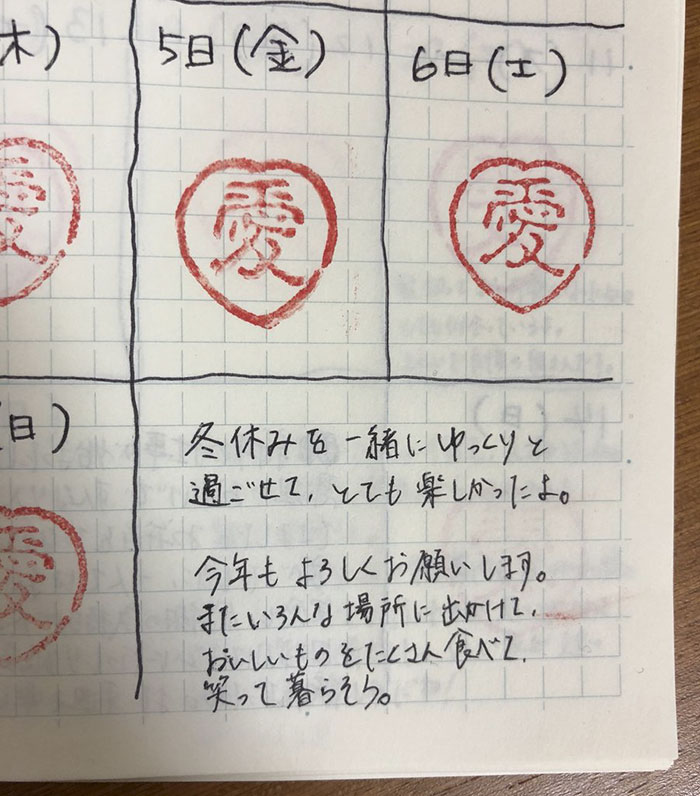 木)
5日(金)
6日(土)
愛
愛
愛
日)
愛
冬休みを一緒にゆっくりと
過ごせて、とても楽しかったよ。
今年もよろしくお願いします。
またいろんな場所に出かけて、
おいしいものをたくさん食べて、
笑って暮らそう。